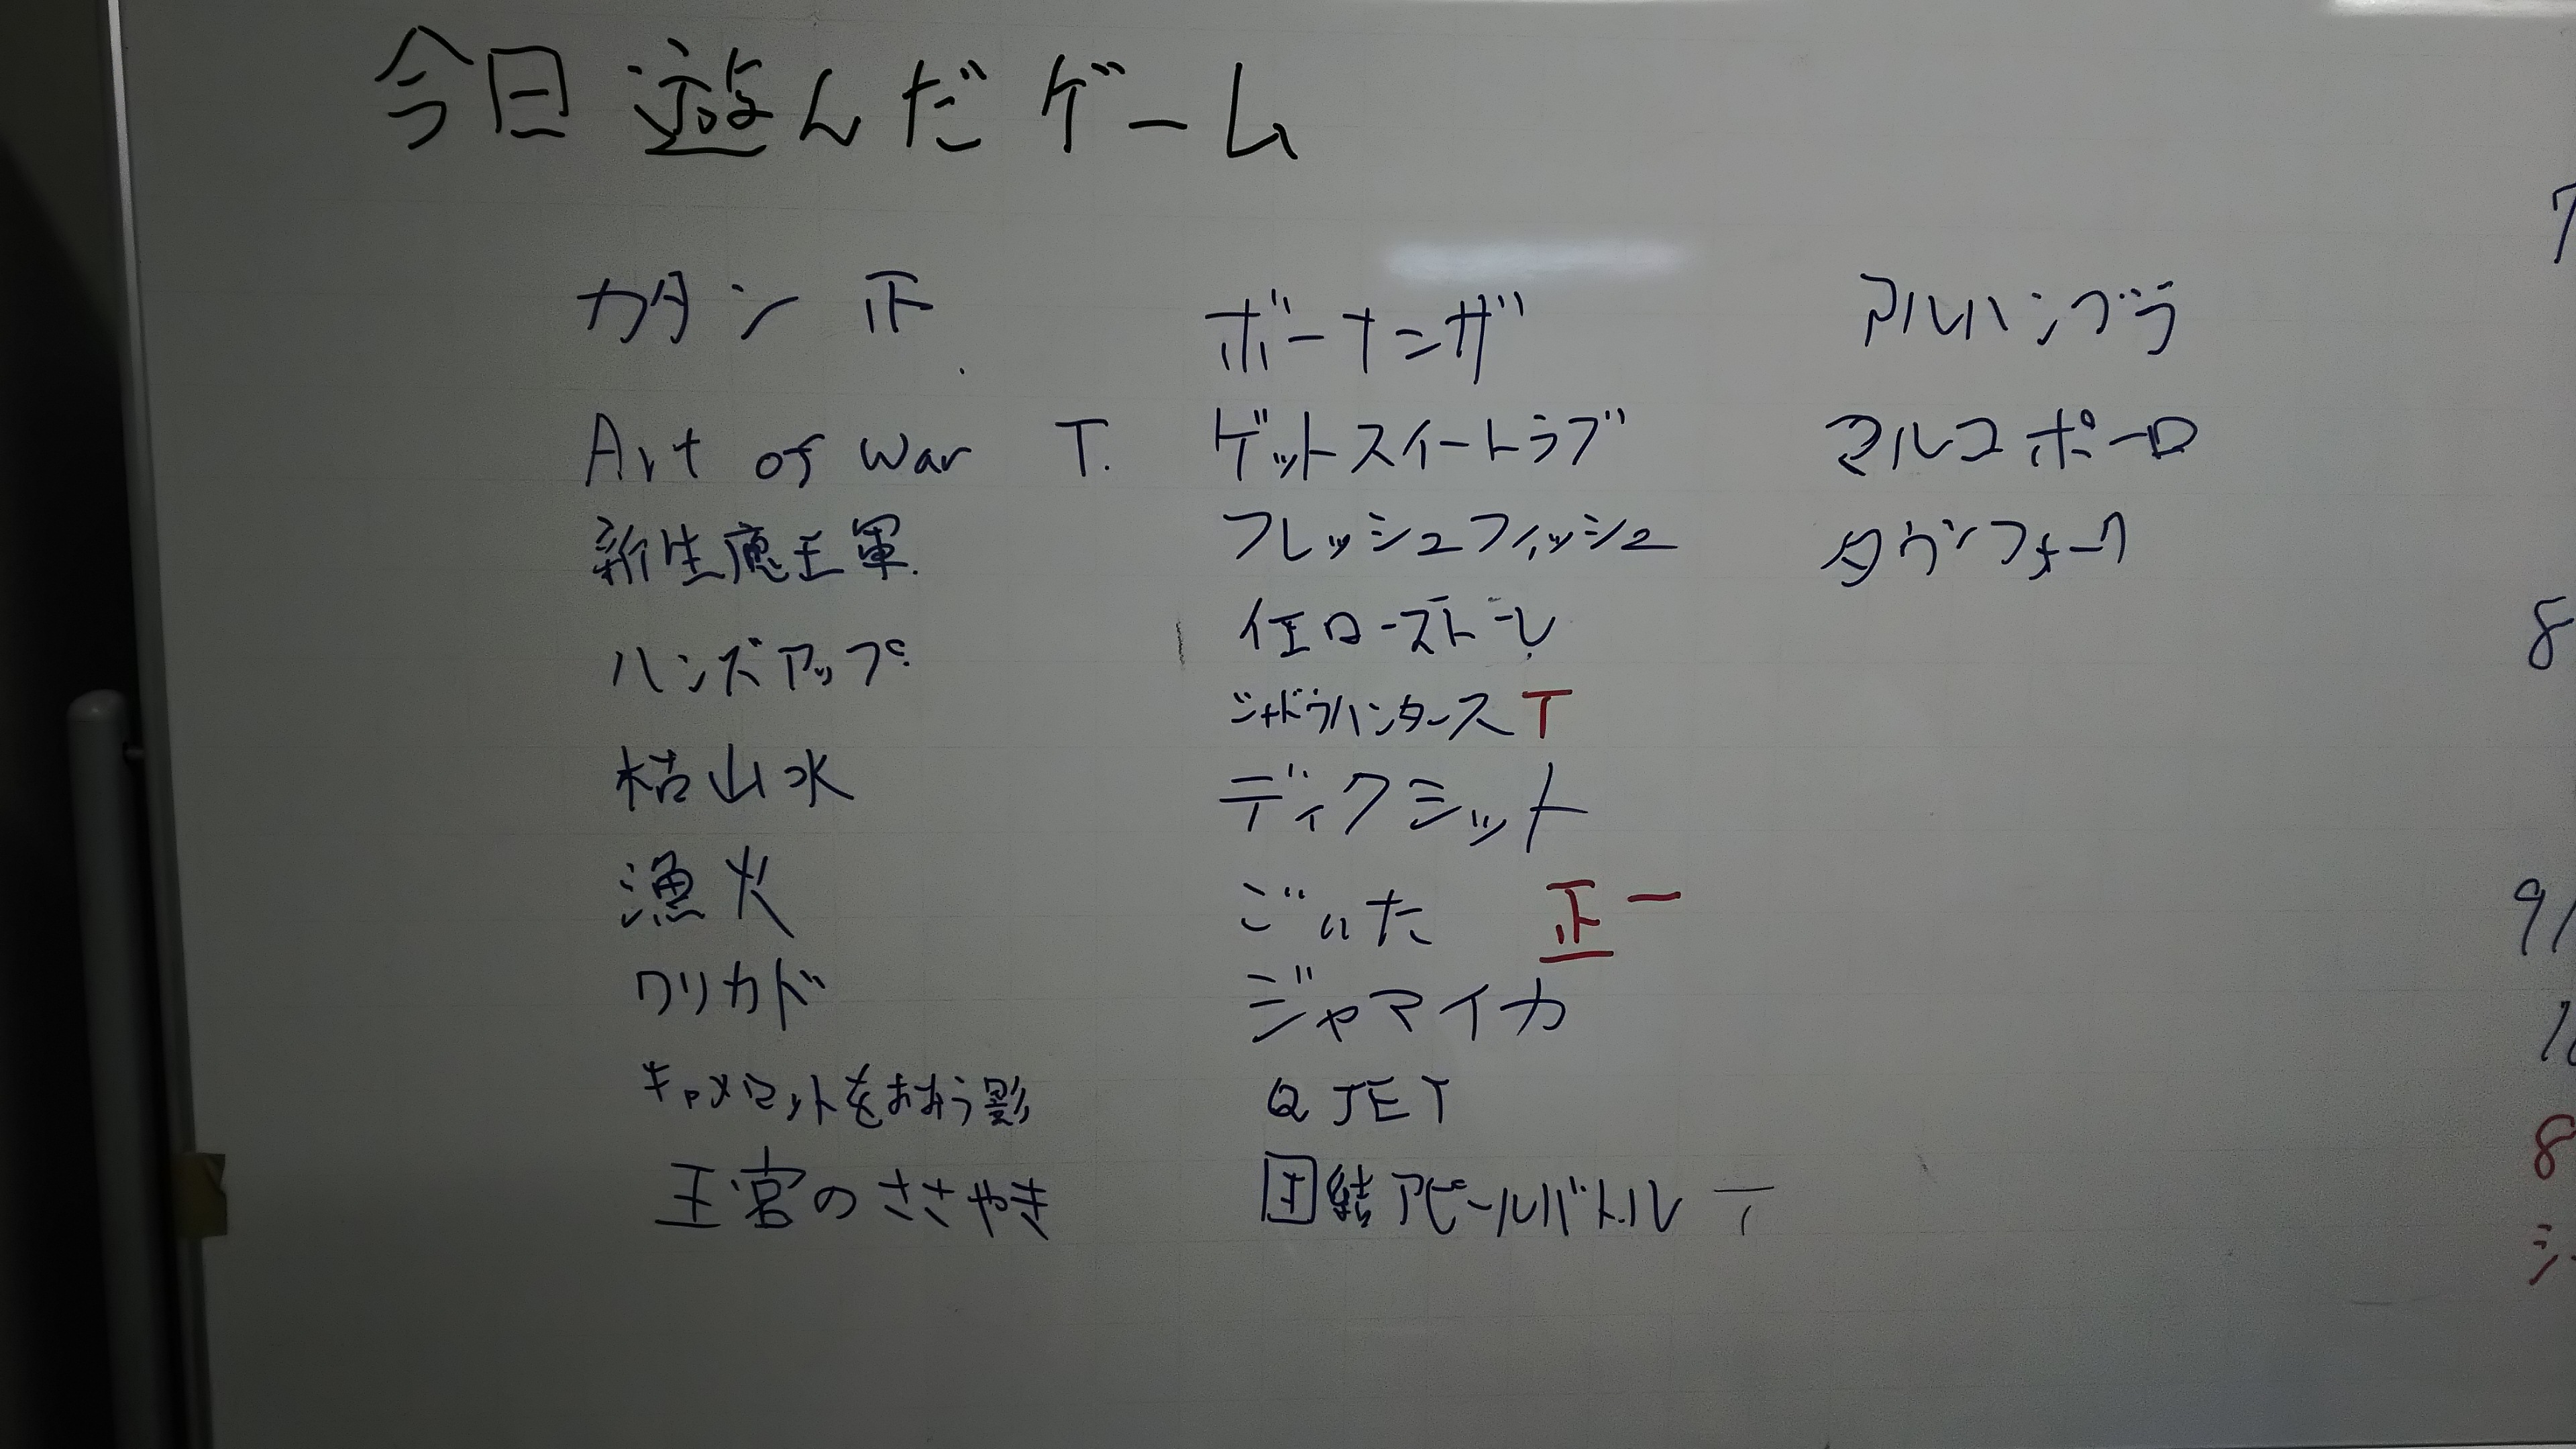 今日遊んだゲーム
カタン 正
Art of War T
新生魔王軍
ハンズアップ
枯山水
漁火
ワリカド
キャメロットをおおう影
王宮のささやき
ボーナンザ
ゲットスイートラブ
フレッシュフィッシュ
イエローストーン
シャドウハンターズ T
ディクシット
ごいた 正一
ジャマイカ
Q JET
団結アピールバトル T
アルハンブラ
マルコポーロ
タウンフォーク
7
8
9/
8